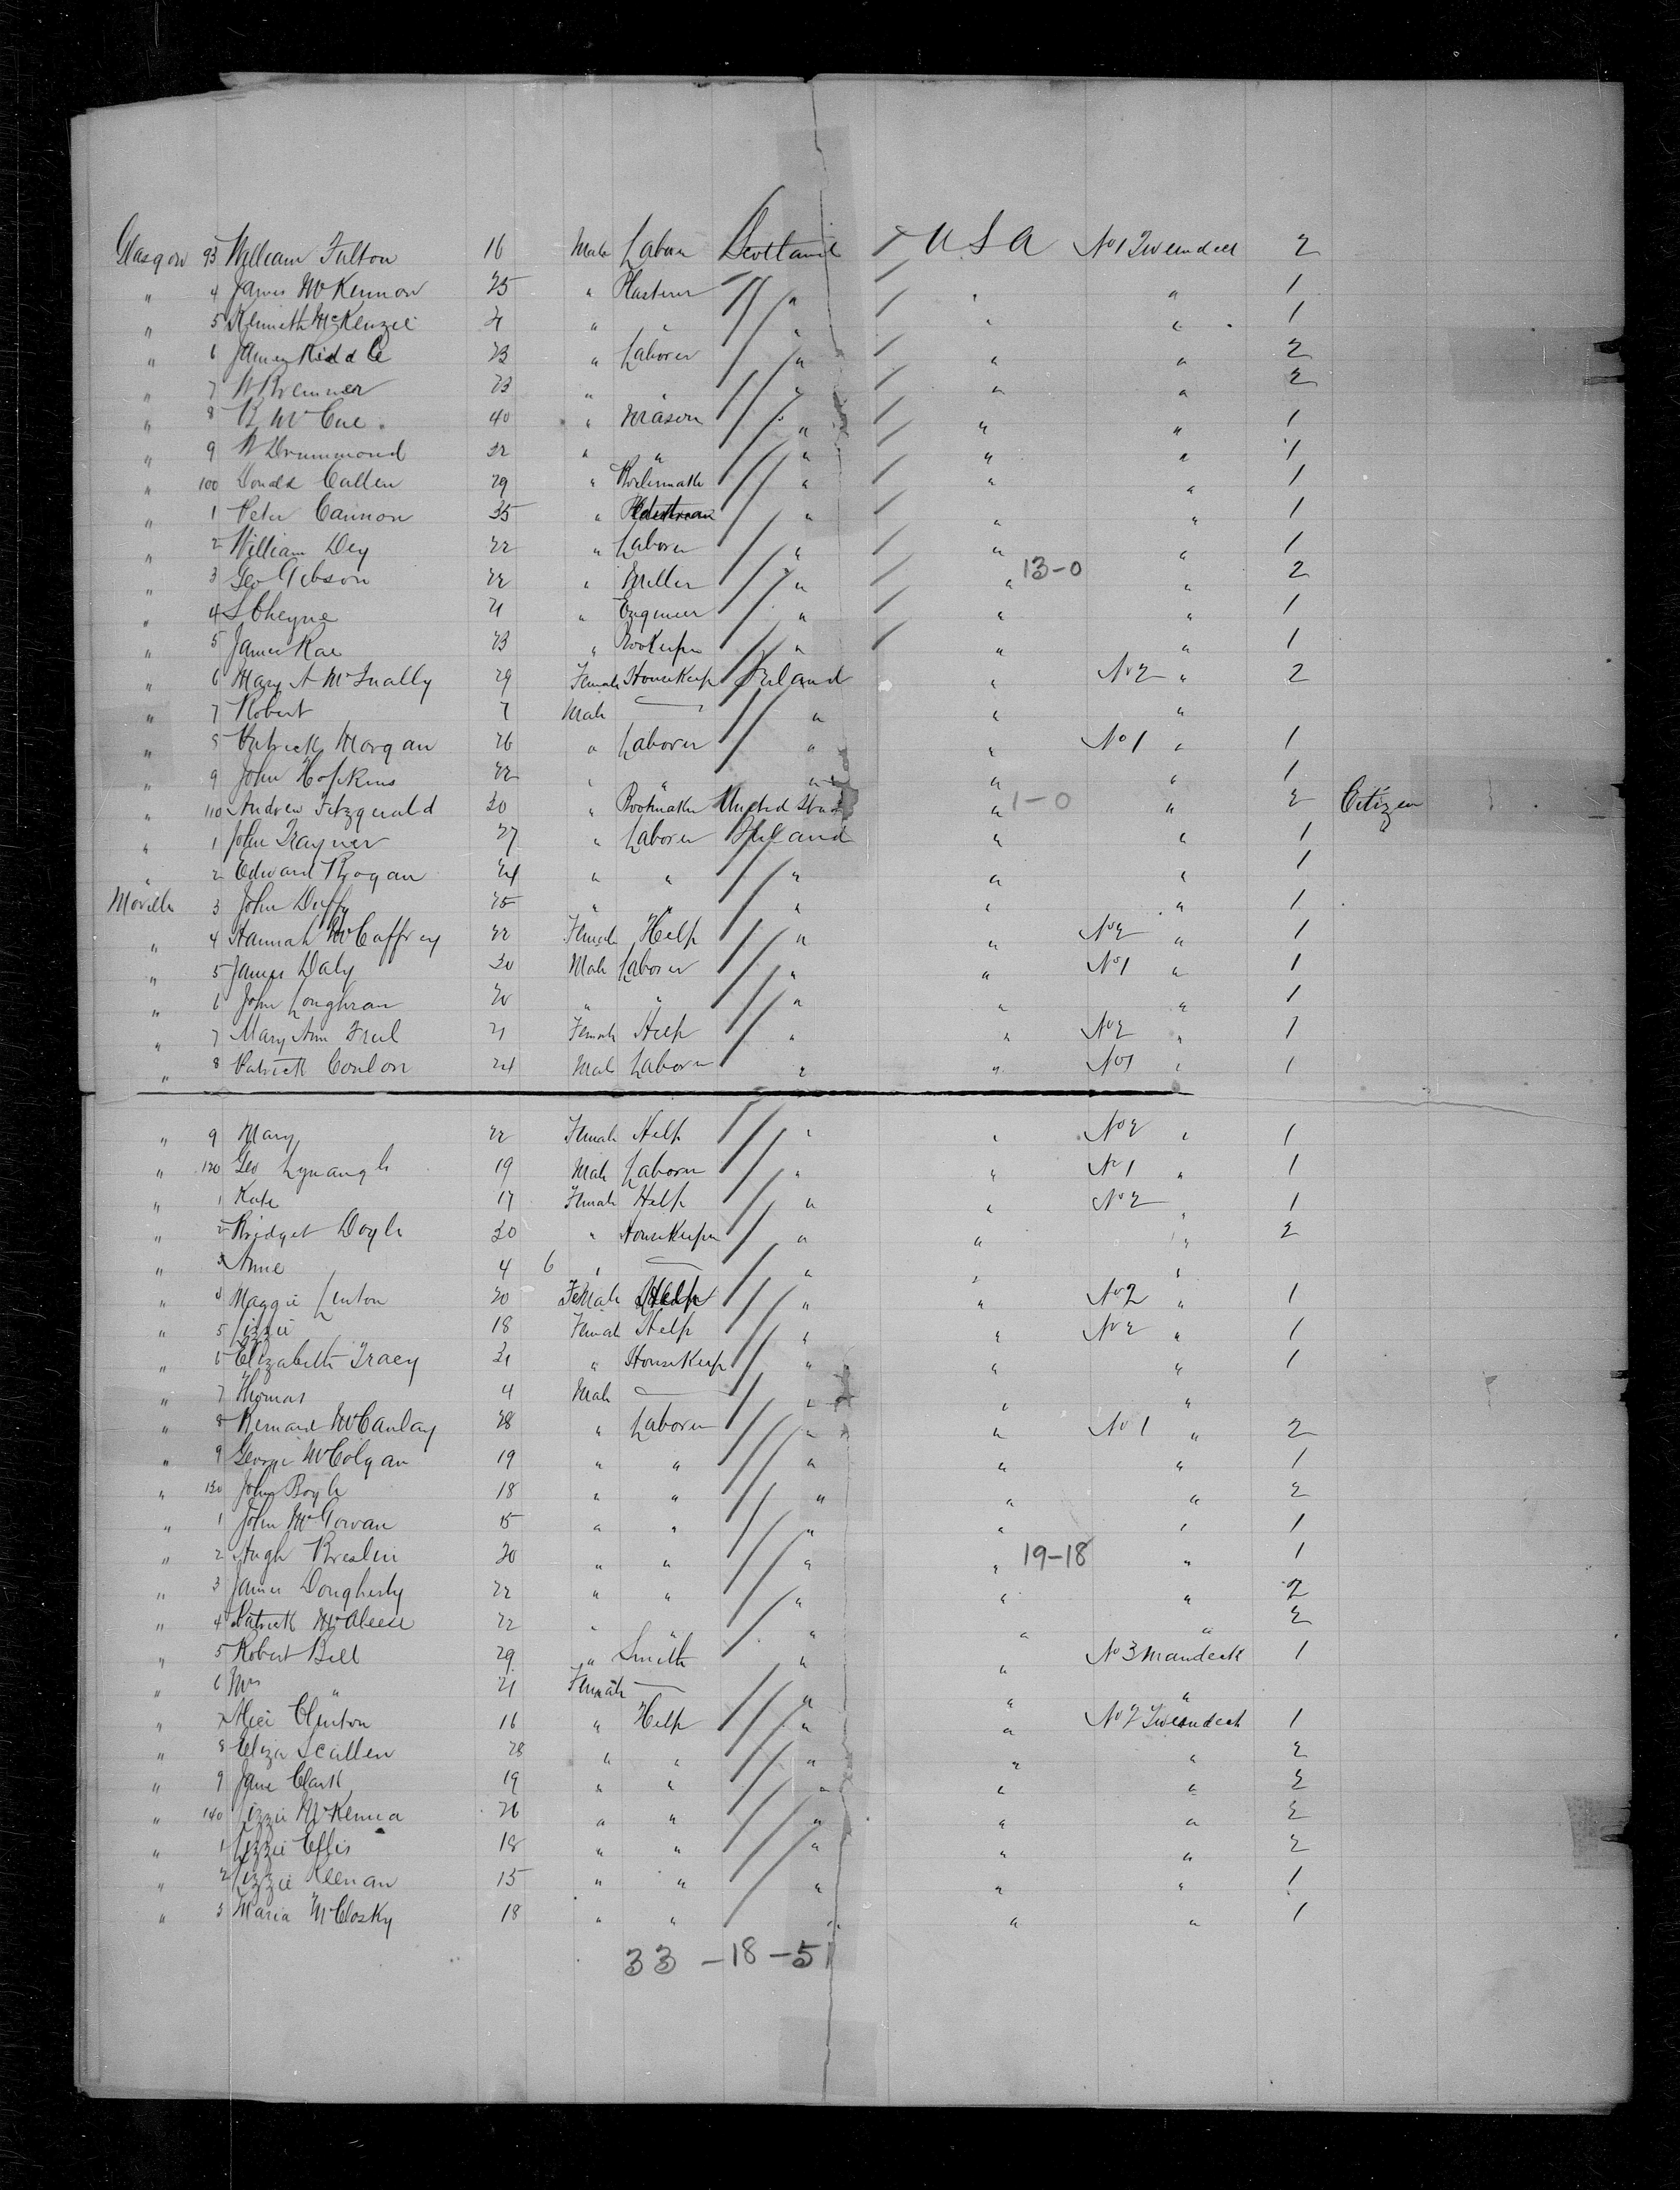 Glasgow 93 William Fulton 16 Male Laborer Scotland U S A No 1 Tweendeck 2
" 4 James McKennon 25 " Plasterer " " " 1
" 5 Kenneth McKenzie 21 " " " " " 1
" 6 James Riddle 23 " Laborer " " " 2
" 7 W Bremner 23 " " " " " 2
" 8 R McCue 40 " Mason " " " 1
" 9 W Drummond 32 " " " " " 1
" 100 Donald Callen 29 " " " " 1
" 1 Peter Cannon 35 " " " " 1
" 2 William Dey 22 " Laborer " " " 1
" 3 Geo Gibson 22 " Miller " " 13-0 " 2
" 4 S Cheyne 21 " Engineer " " " 1
" 5 James Rae 23 " Bookeeper " " " 1
" 6 Mary A McInally 29 Female HouseKeep Ireland " No 2 " 2
" 7 Robert 7 Male — " " "
" 8 Patrick Morgan 26 " Laborer " " No 1 " 1
" 9 John Hopkins 22 " " " " " 1
" 110 Andrew Fitzgerald 30 " Bootmaker United States " 1-0 " 2 Citizen
" 1 John Traynor 27 " Laborer Ireland " " 1
" 2 Edward Brogan 24 " " " " " 1
Moville 3 John Duffy 25 " " " " " 1
" 4 Hannah McCaffrey 22 Female Help " " No 2 " 1
" 5 James Daly 30 Male Laborer " " No 1 " 1
" 6 John Loughran 20 " " " " " 1
" 7 Mary Ann Friel 21 Female Help " " No 2 " 1
" 8 Patrick Conlon 24 Male Laborer " " No 1 " 1
" 9 Mary 22 Female Help " " No 2 " 1
" 120 Geo Lynaugh 19 Male Laborer " " No 1 " 1
" 1 Kate 17 Female Help " " No 2 " 1
" 2 Bridget Doyle 30 " HouseKeeper " " " 2
" 3 Anne 4 6 " — " " "
" 4 Maggie Lenton 20 Female Help " " No 2 " 1
" 5 Lizzie 18 Female Help " " No 2 " 1
" 6 Elizabeth Tracey 31 " HouseKeep " " " 1
" 7 Thomas 4 Male — " " "
" 8 Bernard McCaulay 28 " Laborer " " No 1 " 2
" 9 George McColgan 19 " " " " " 1
" 130 John Boyle 18 " " " " " 2
" 1 John McGowan 15 " " " " " 1
" 2 Hugh Breslin 20 " " " " 19-18 " 1
" 3 James Dougherty 22 " " " " " 2
" 4 Patrick McAleese 22 " " " " " 2
" 5 Robert Bell 29 " Smith " " No 3 Maindeck 1
" 6 Mrs " 21 Female — " " "
" 7 Clinton 16 " Help " " No 2 Tweendeck 1
" 8 Eliza Scullen 28 " " " " " 2
" 9 Jane Clark 19 " " " " " 2
" 140 Lizzie McKenna 26 " " " " " 2
" 1 Lizzie Ellis 18 " " " " " 2
" 2 Lizzie Keenan 15 " " " " " 1
" 3 Maria McClosky 18 " " " " " 1
33 - 18 - 51